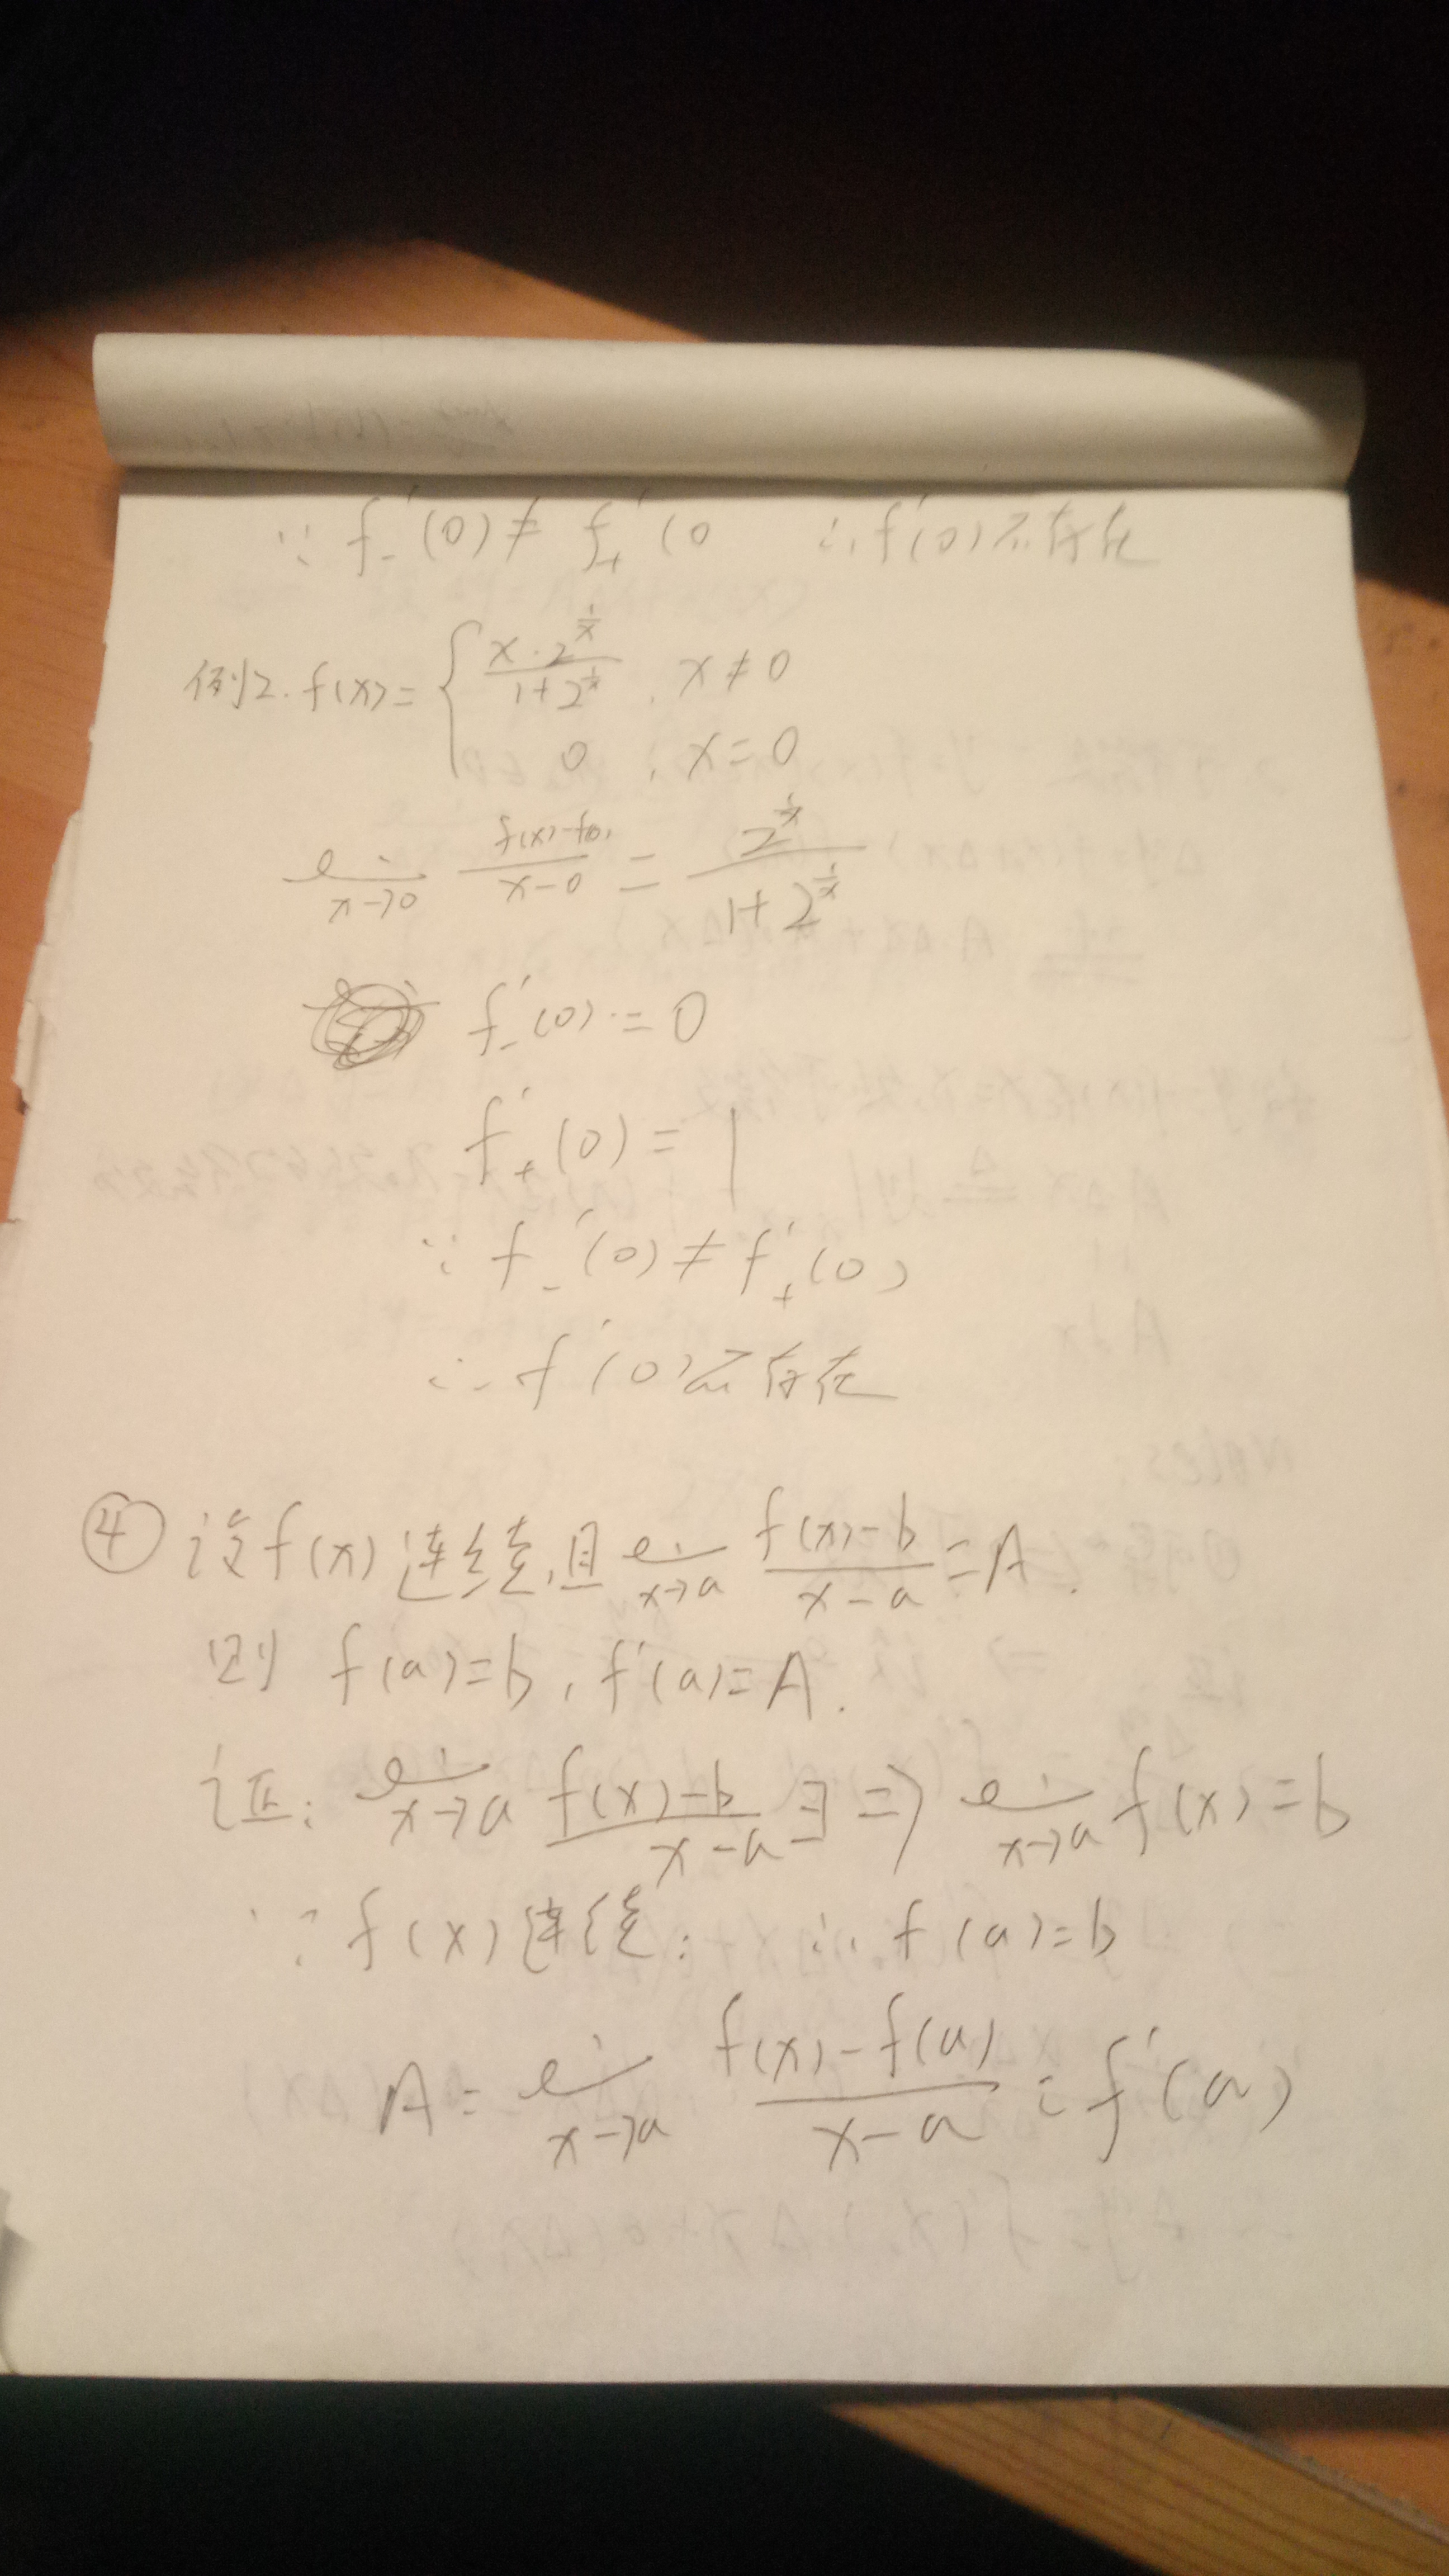 ∵ f₋′(0) ≠ f₊′(0 ∴ f′(0)不存在
例2. f(x) = { x·2^(1/x) / (1+2^(1/x)) , x≠0
0 , x=0
lim x→0 (f(x)-f(0)) / (x-0) = 2^(1/x) / (1+2^(1/x))
f₋′(0) = 0
f₊′(0) = 1
∵ f₋′(0) ≠ f₊′(0)
∴ f′(0)不存在
④ 设f(x)连续,且 lim x→a (f(x)-b) / (x-a) = A.
则 f(a)=b, f′(a)=A.
证: lim x→a (f(x)-b) / (x-a) ∃ ⇒ lim x→a f(x)=b
∵ f(x)连续; ∴ f(a)=b
A = lim x→a (f(x)-f(a)) / (x-a) = f′(a)